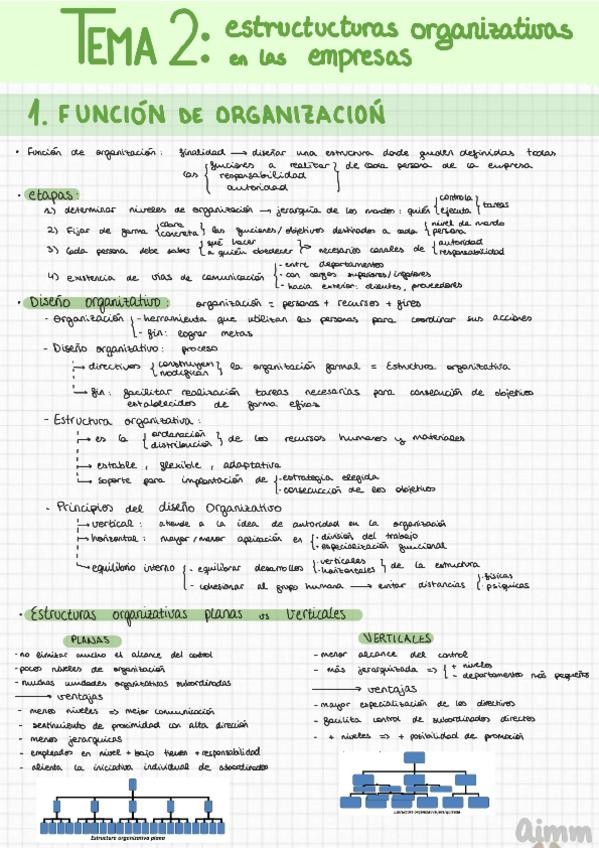 TEMA 2: estructucturas organizativas
en las empresas
1. FUNCIÓN DE ORGANIZACIOŃ
• Función de organización: finalidad → diseñar una estructura donde queden definidas todas
las { funciones a realizar } de cada persona de la empresa
responsabilidad
autoridad
• etapas:
1) determinar niveles de organización → jerarquía de los mandos: quién { controla } tareas
ejecuta
2) Fijar de forma { clara } las funciones/objetivos destinados a cada { nivel de mando
concreta persona
3) Cada persona debe saber { qué hacer } → necesarios canales de { autoridad
a quién obedecer responsabilidad
4) existencia de vías de comunicación { - entre departamentos
- con cargos superiores/inferiores
- hacia exterior: clientes, proveedores
• Diseño organizativo: organización = personas + recursos + fines
- Organización { - herramienta que utilizan las personas para coordinar sus acciones
- fin: lograr metas
- Diseño organizativo: proceso
→ directivos { construyen } la organización formal = Estructura organizativa
modifican
→ fin: facilitar realización tareas necesarias para consecución de objetivos
establecidos de forma eficaz
- Estructura organizativa:
→ es la { ordenación } de los recursos humanos y materiales
distribución
→ estable, flexible, adaptativa
→ soporte para implantación de { - estrategia elegida
- consecución de los objetivos
- Principios del diseño Organizativo
→ vertical: atiende a la idea de autoridad en la organización
→ horizontal: mayor/menor aplicación en { • división del trabajo
• especialización funcional
→ equilibrio interno { - equilibrar desarrollos { • verticales } de la estructura
• horizontales
- cohesionar al grupo humano → evitar distancias { • físicas
• psíquicas
• Estructuras organizativas planas vs Verticales
PLANAS
- no limitar mucho el alcance del control
- pocos niveles de organización
- muchas unidades organizativas subordinadas
→ ventajas
- menos niveles => mejor comunicación
- sentimiento de proximidad con alta dirección
- menos jerárquicas
- empleados en nivel + bajo tienen + responsabilidad
- alienta la iniciativa individual de subordinados
Estructura organizativa plana
VERTICALES
- menor alcance del control
- más jerarquizada => { + niveles
- departamentos más pequeños
→ ventajas
- mayor especialización de los directivos
- facilita control de subordinados directos
- + niveles => + posibilidad de promoción
aimm